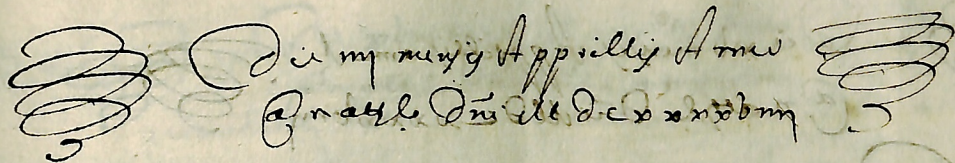 Die iiij mensis Apprillis Anno
a natle Dñi Mil Dcxxxxviiij